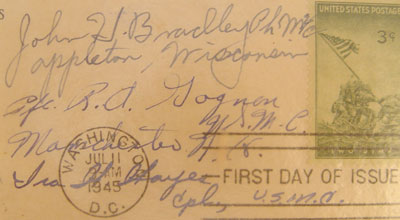 John H. Bradley Ph M 2/c
Appleton, Wisconsin
Pfc. R. A. Gagnon
U.S.M.C.
Manchester N.H.
Ira H. Hayes
Cpl., U.S.M.C.
WASHINGTON
JUL 11
M
1945
D.C.
FIRST DAY OF ISSUE
UNITED STATES POSTAGE
3¢